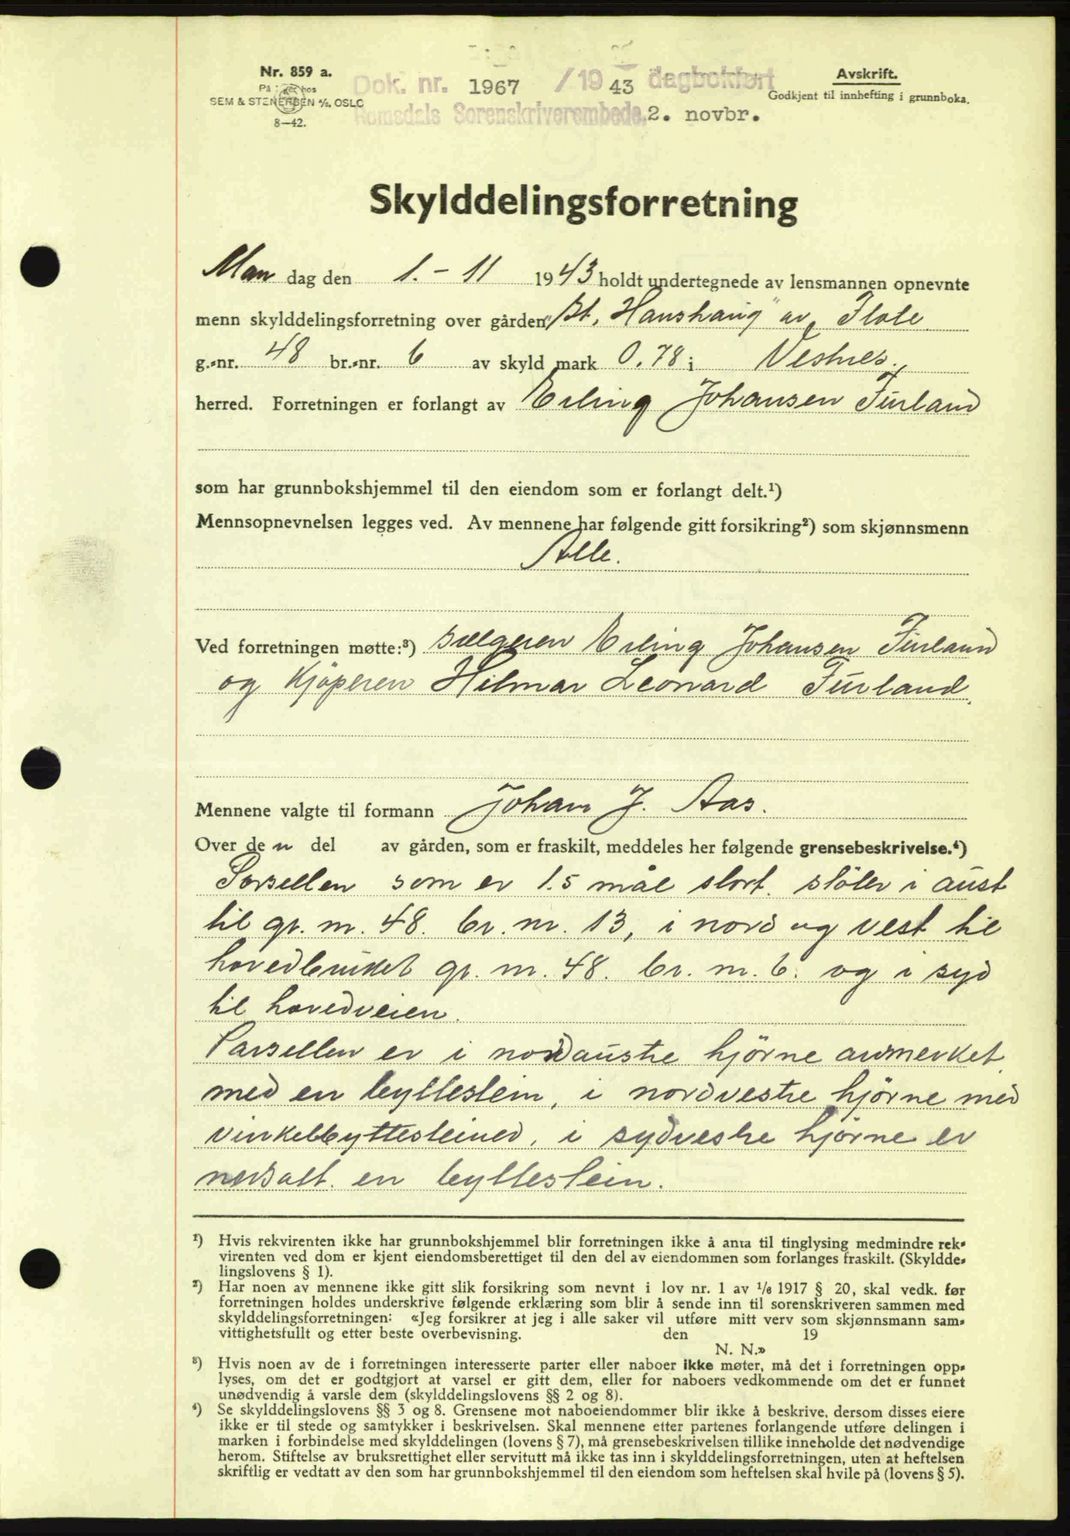 Nr. 859 a.
På lager hos
SEM & STENERSEN A/S, OSLO
8—42.
Dok. nr. 1967 /19 43 dagbokført
Romsdals Sorenskriverembede, 2. novbr.
Avskrift.
Godkjent til innhefting i grunnboka.
Skylddelingsforretning
Man dag den 1. - 11 1943 holdt undertegnede av lensmannen opnevnte
menn skylddelingsforretning over gården "Haushaug" av Flote
g.-nr. 48 br.-nr. 6 av skyld mark 0.78 i Vestnes
herred. Forretningen er forlangt av Erling Johansen Furland
som har grunnbokshjemmel til den eiendom som er forlangt delt.¹)
Mennsopnevnelsen legges ved. Av mennene har følgende gitt forsikring²) som skjønnsmenn
Alle.
Ved forretningen møtte:³) Sælgeren Erling Johansen Furland
og Kjøperen Hilmar Leonard Furland.
Mennene valgte til formann Johan J. Aas.
Over den del av gården, som er fraskilt, meddeles her følgende grensebeskrivelse.⁴)
Parsellen som er 1.5 mål stort. støter i aust
til gr. nr. 48. br. nr. 13, i nord og vest til
hovedbruket gr. nr. 48. br. nr. 6. og i syd
til hovedveien.
Parsellen er i nordaustre hjørne avmerket
med en byttestein, i nordvestre hjørne med
vinkelbyttesteiner, i sydvestre hjørne er
nedsatt en byttestein.
¹) Hvis rekvirenten ikke har grunnbokshjemmel blir forretningen ikke å anta til tinglysing medmindre rek-
virenten ved dom er kjent eiendomsberettiget til den del av eiendommen som forlanges fraskilt. (Skyldde-
lingslovens § 1).
²) Har noen av mennene ikke gitt slik forsikring som nevnt i lov nr. 1 av 1/6 1917 § 20, skal vedk. før
forretningen holdes underskrive følgende erklæring som blir å sende inn til sorenskriveren sammen med
skylddelingsforretningen: «Jeg forsikrer at jeg i alle saker vil utføre mitt verv som skjønnsmann sam-
vittighetsfullt og etter beste overbevisning. den 19
N. N.»
³) Hvis noen av de i forretningen interesserte parter eller naboer ikke møter, må det i forretningen opp-
lyses, om det er godtgjort at varsel er gitt dem, eller for naboers vedkommende om det er funnet
unødvendig å varsle dem (skylddelingslovens §§ 2 og 8).
⁴) Se skylddelingslovens §§ 3 og 8. Grensene mot naboeiendommer blir ikke å beskrive, dersom disses eiere
ikke er til stede og samtykker i beskrivelsen. Skal mennene etter partenes forlangende utføre delingen i
marken i forbindelse med skylddelingen (lovens § 7), må grensebeskrivelsen tillike inneholde det nødvendige
herom. Stiftelse av bruksrettighet eller servitutt må ikke tas inn i skylddelingsforretningen, uten at heftelsen
skriftlig er vedtatt av den som har grunnbokshjemmel til den eiendom som heftelsen skal hvile på (lovens § 5).